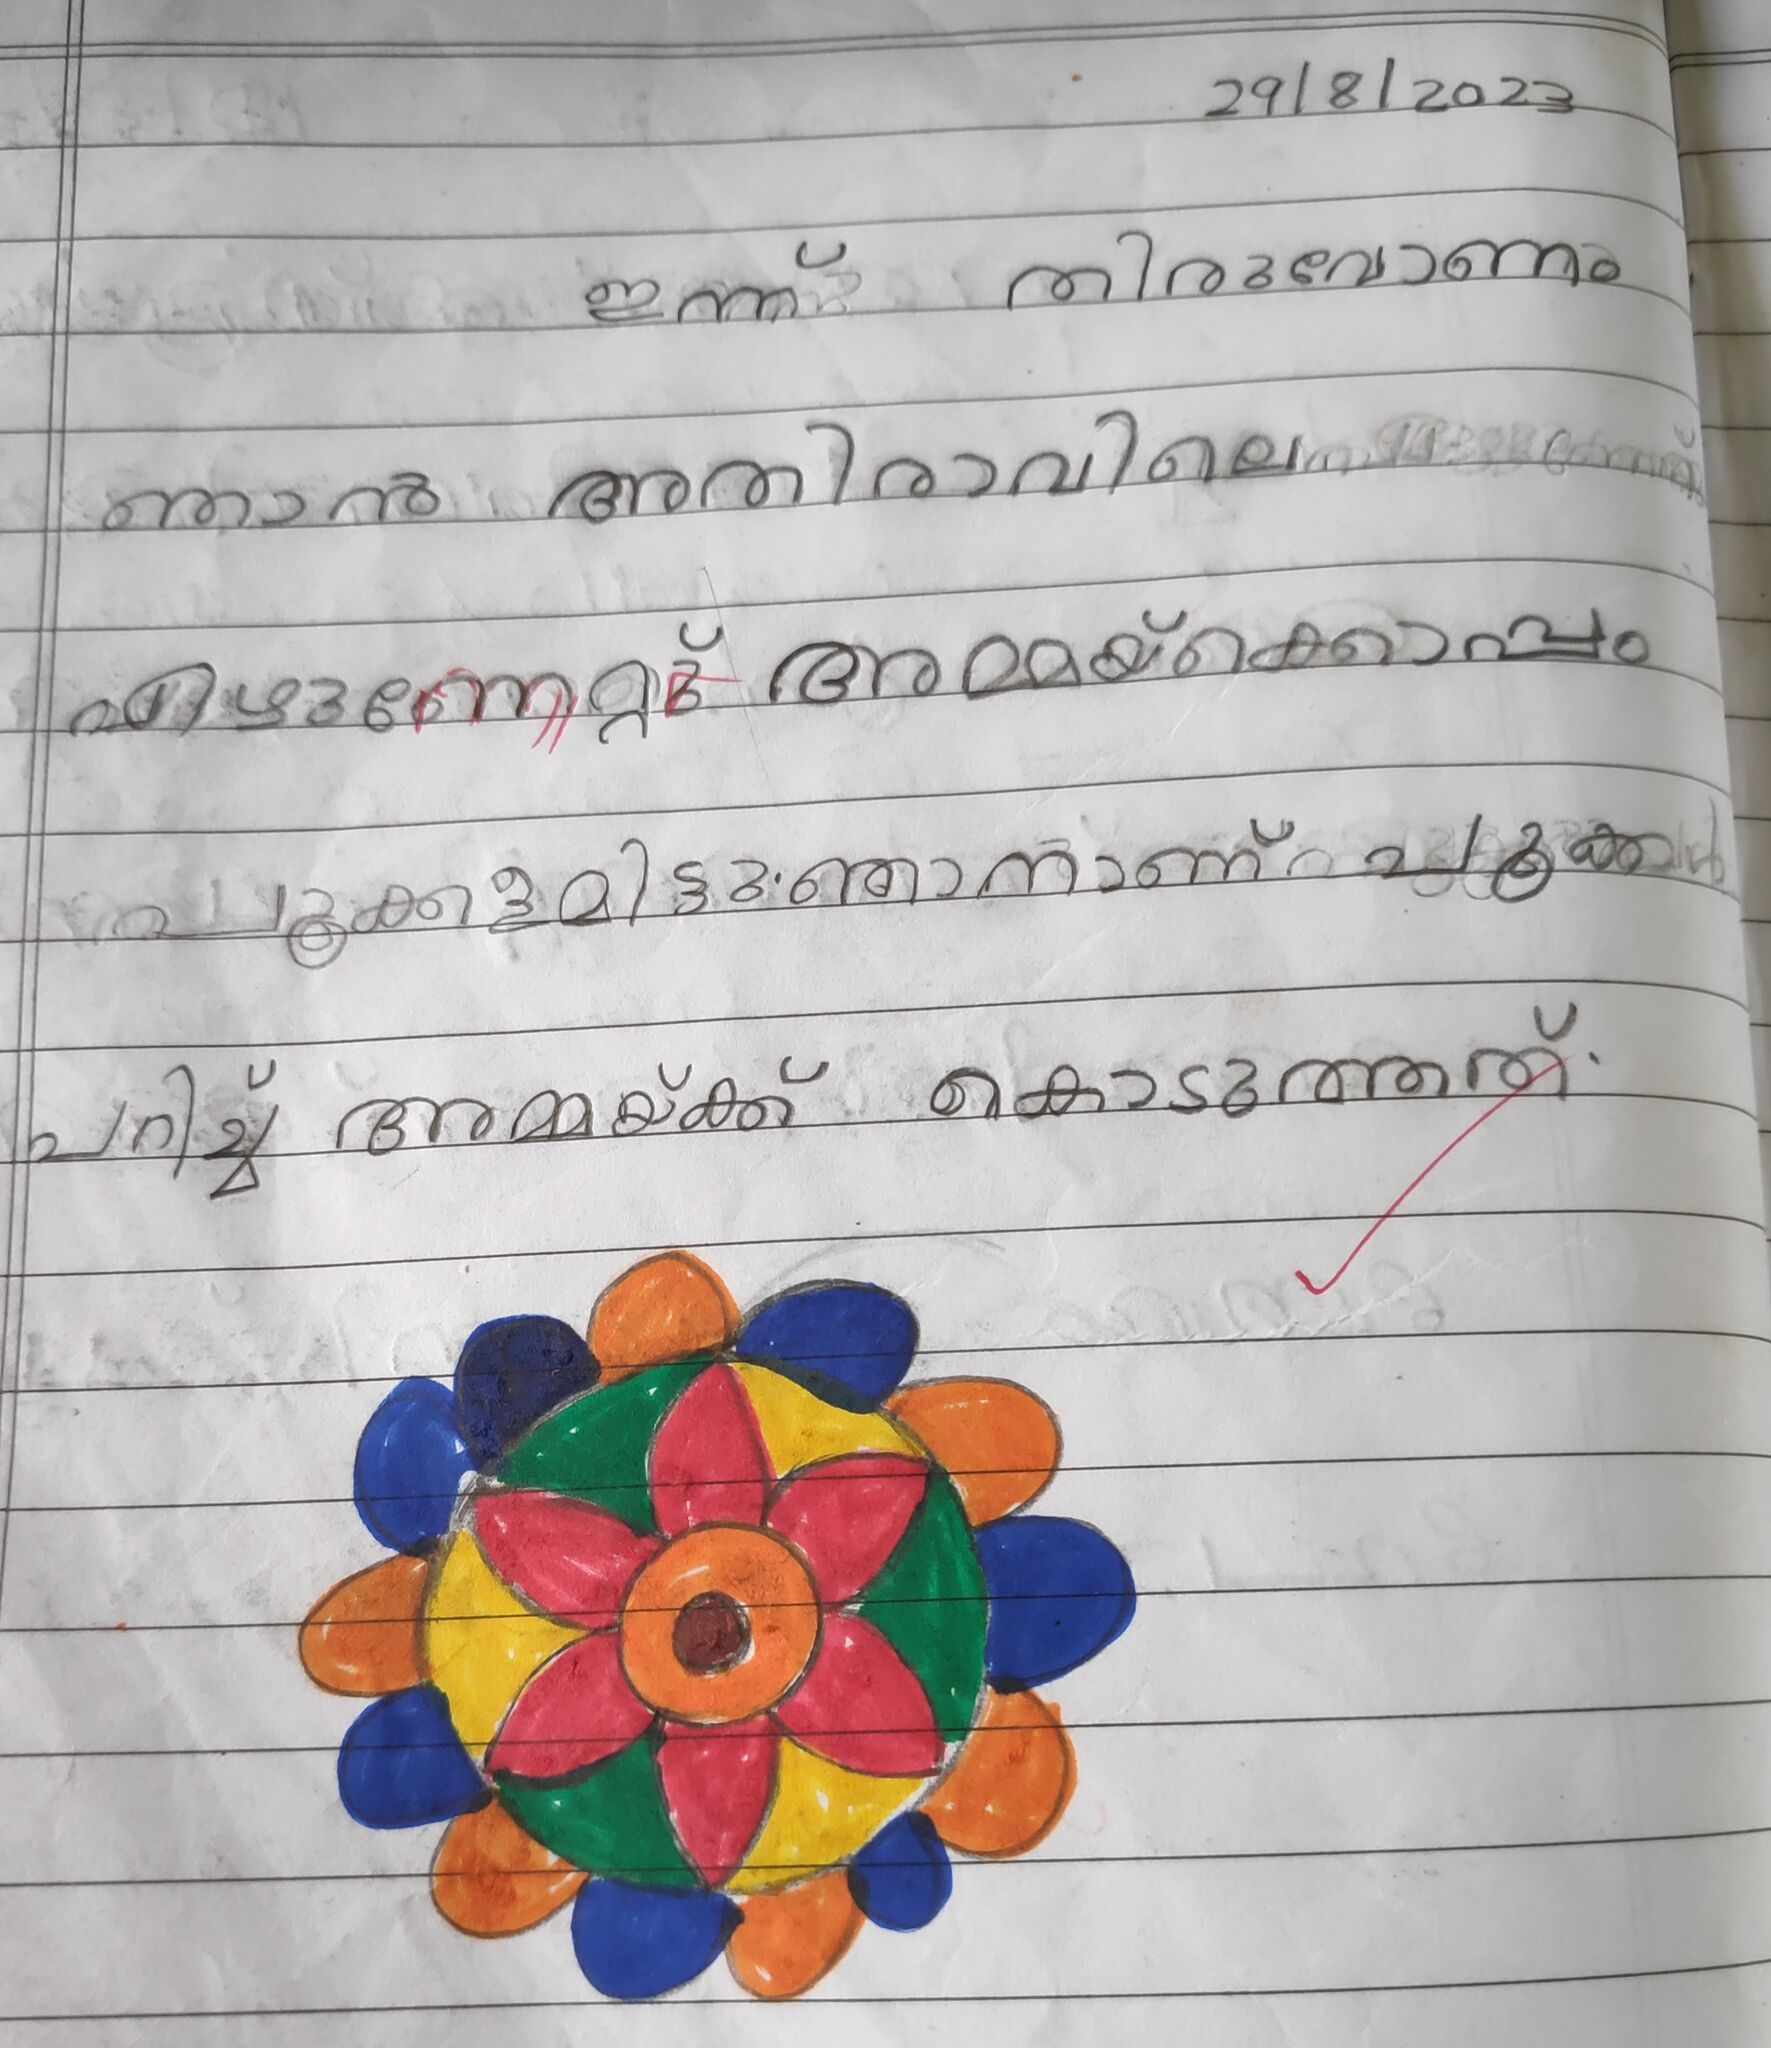 29/8/2023
ഇന്ന് തിരുവോണം
ഞാൻ അതിരാവിലെ
എഴുന്നേറ്റ് അമ്മയ്ക്കൊപ്പം
പൂക്കളമിട്ടു. ഞാനാണ് പൂക്കൾ
പറിച്ച് അമ്മയ്ക്ക് കൊടുത്തത്.